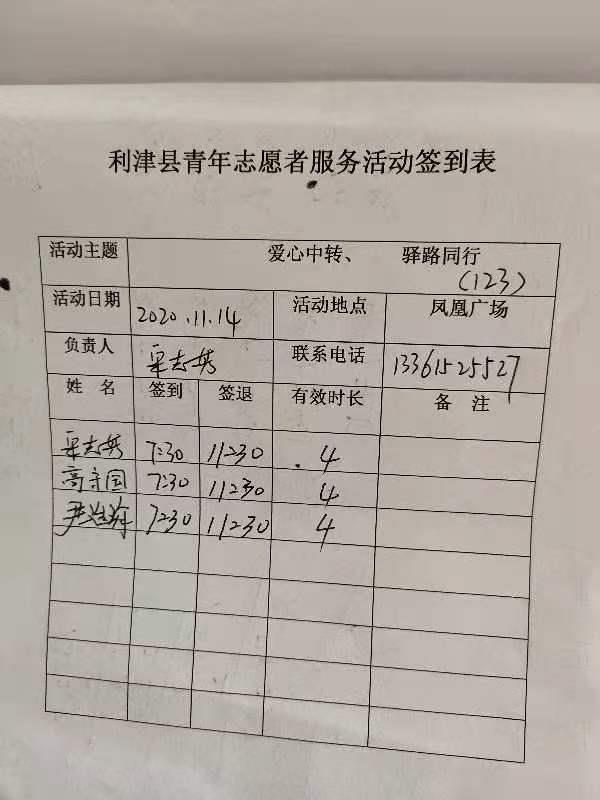 利津县青年志愿者服务活动签到表
活动主题 爱心中转、 驿路同行
(123)
活动日期 2020.11.14 活动地点 凤凰广场
负责人 联系电话 13361525527
姓名 签到 签退 有效时长 备注
7:30 11:30 4
高守国 7:30 11:30 4
尹 7:30 11:30 4